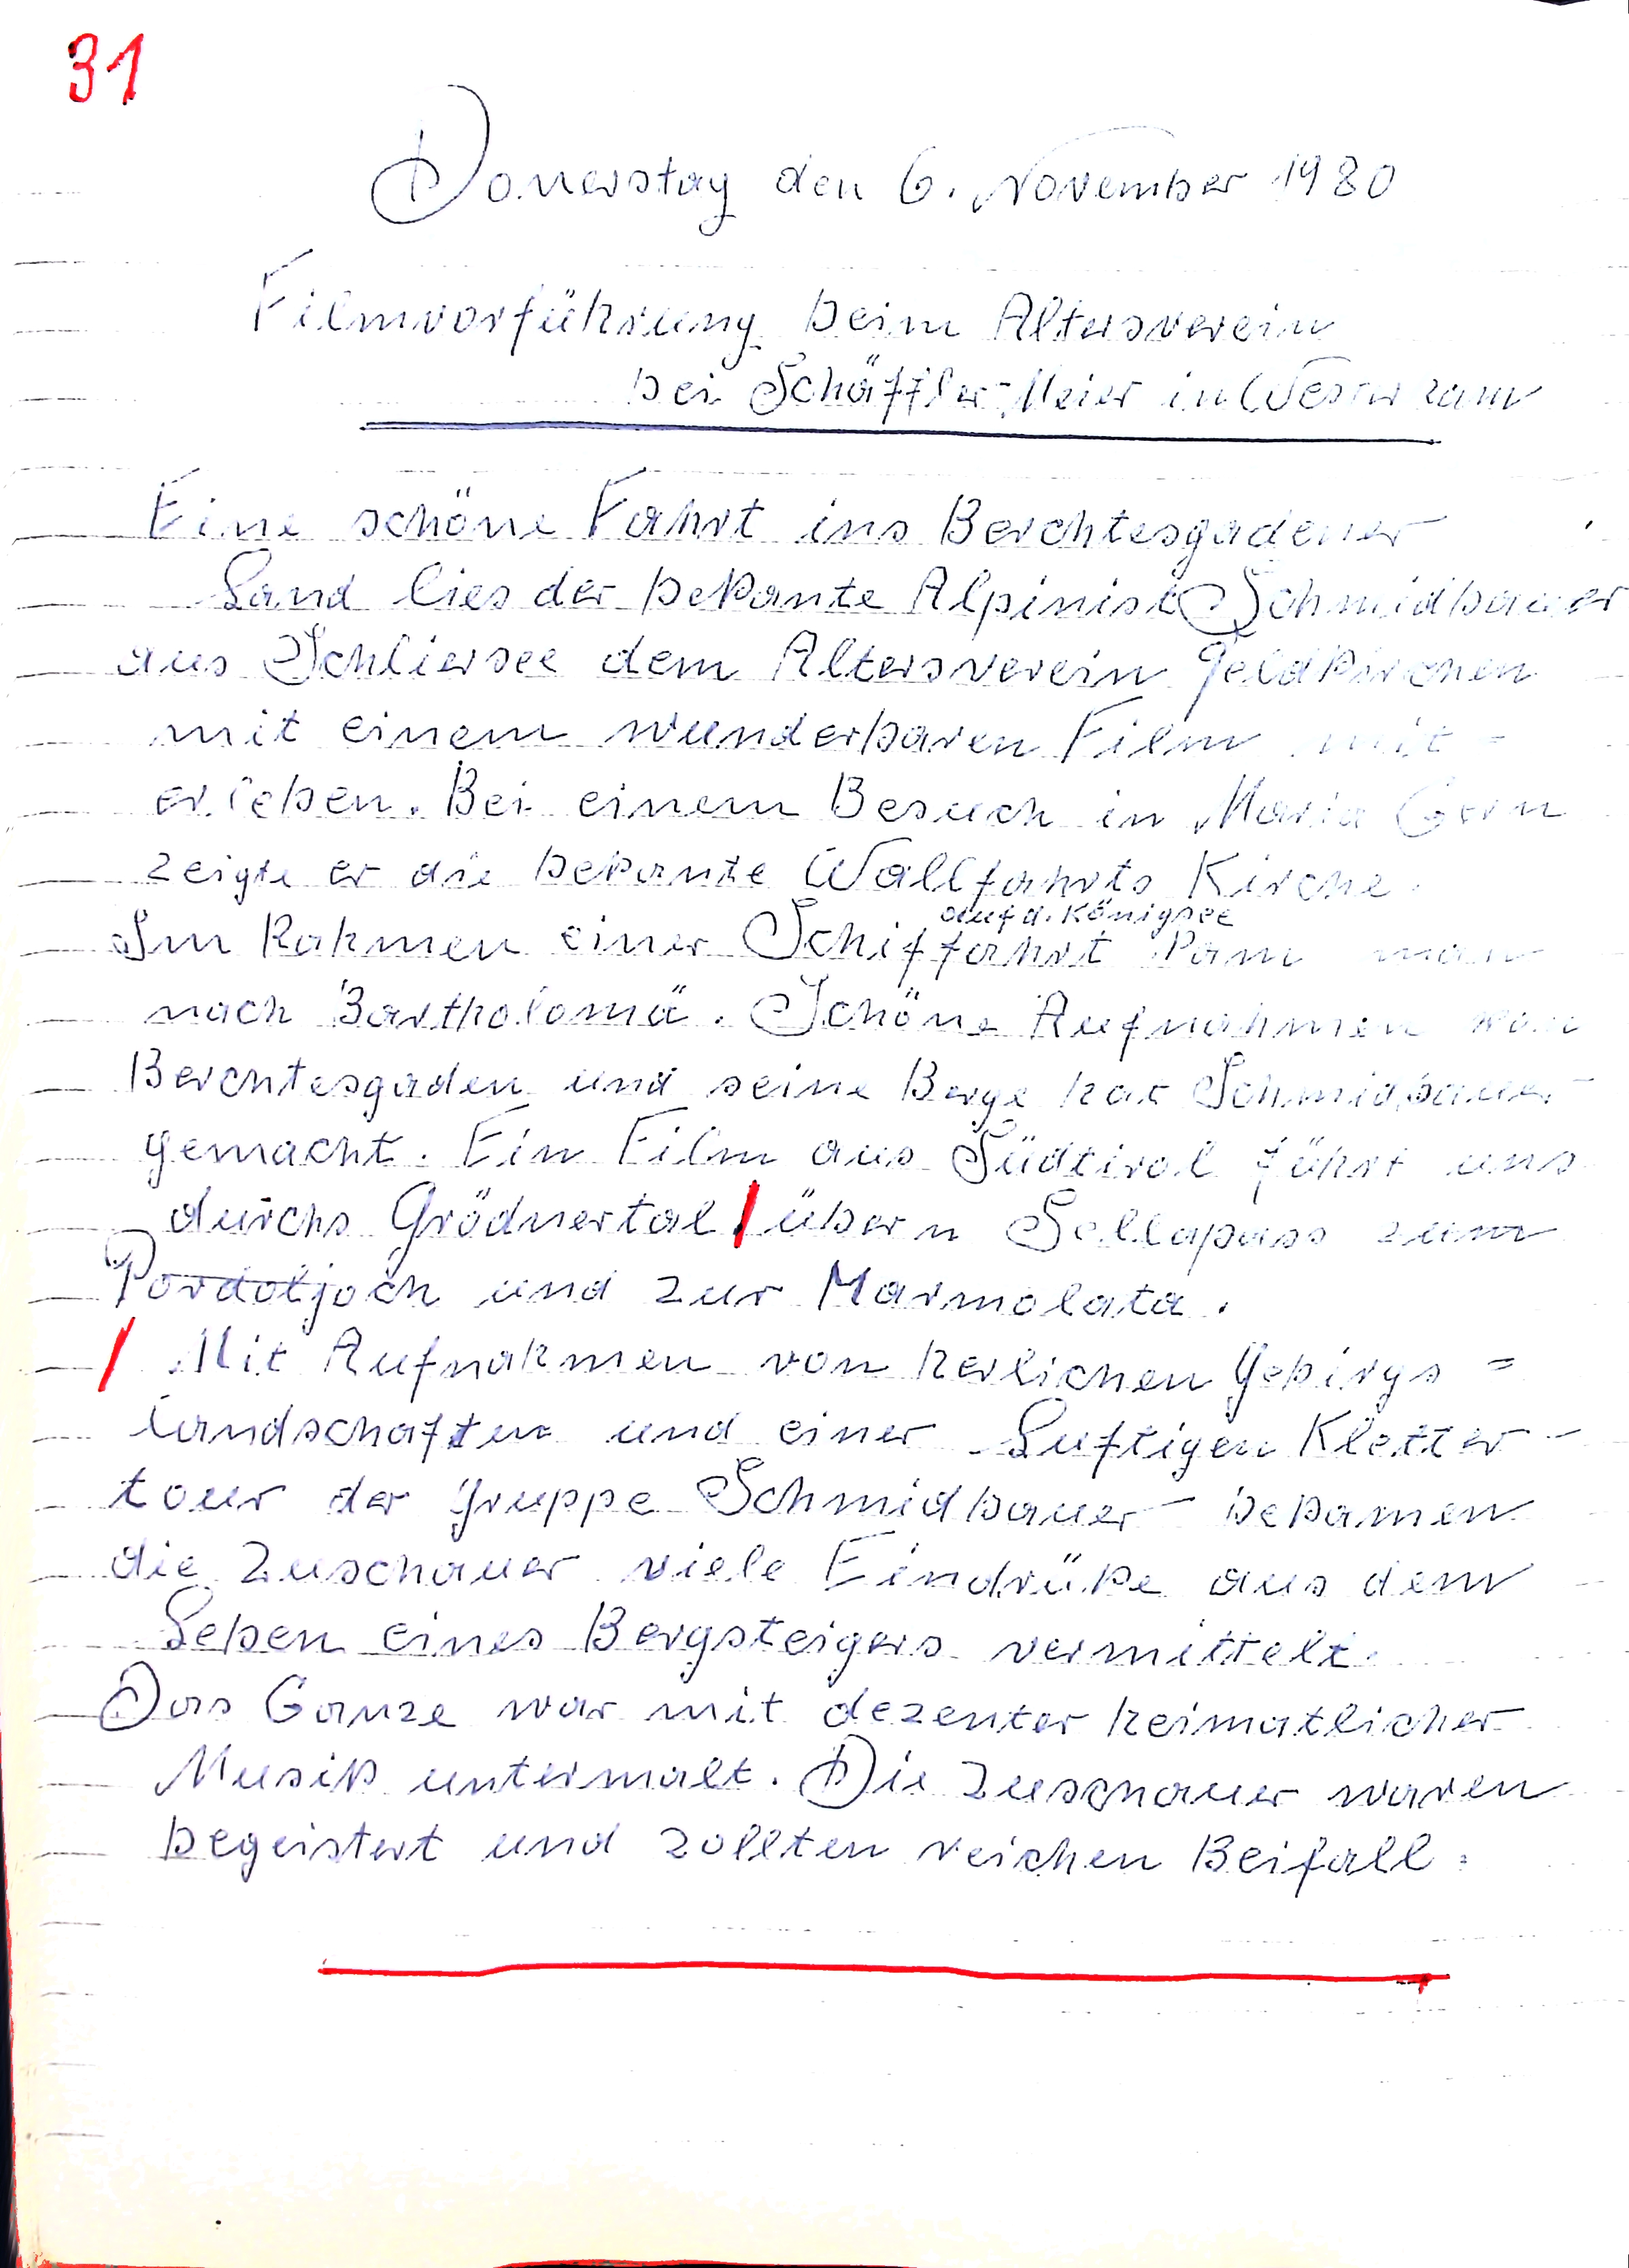 31
Donerstag den 6. November 1980
Filmvorführung beim Altersverein
bei Schäffler-Meier in Westerham
Eine schöne Fahrt ins Berchtesgadener
Land lies der bekante Alpinist Schmidbauer
aus Schliersee dem Altersverein Feldkirchen
mit einem wunderbaren Film mit=
erleben. Bei einem Besuch in Maria Gern
zeigte er die bekante Wallfahrts Kirche.
auf d. Königsee
Im Rahmen einer Schiffahrt kam man
nach Bartholomä. Schöne Aufnahmen von
Berchtesgaden und seine Berge hat Schmidbauer
gemacht. Ein Film aus Südtirol führt uns
durchs Grödnertal übern Sellapass zum
Pordoijoch und zur Marmolata.
Mit Aufnahmen von herlichen Gebirgs=
landschaften und einer Luftigen Kletter-
tour der Gruppe Schmidbauer bekamen
die Zuschauer viele Eindrüke aus dem
Leben eines Bergsteigers vermittelt.
Das Ganze war mit dezenter heimatlicher
Musik untermalt. Die Zuschauer waren
begeistert und zollten reichen Beifall.